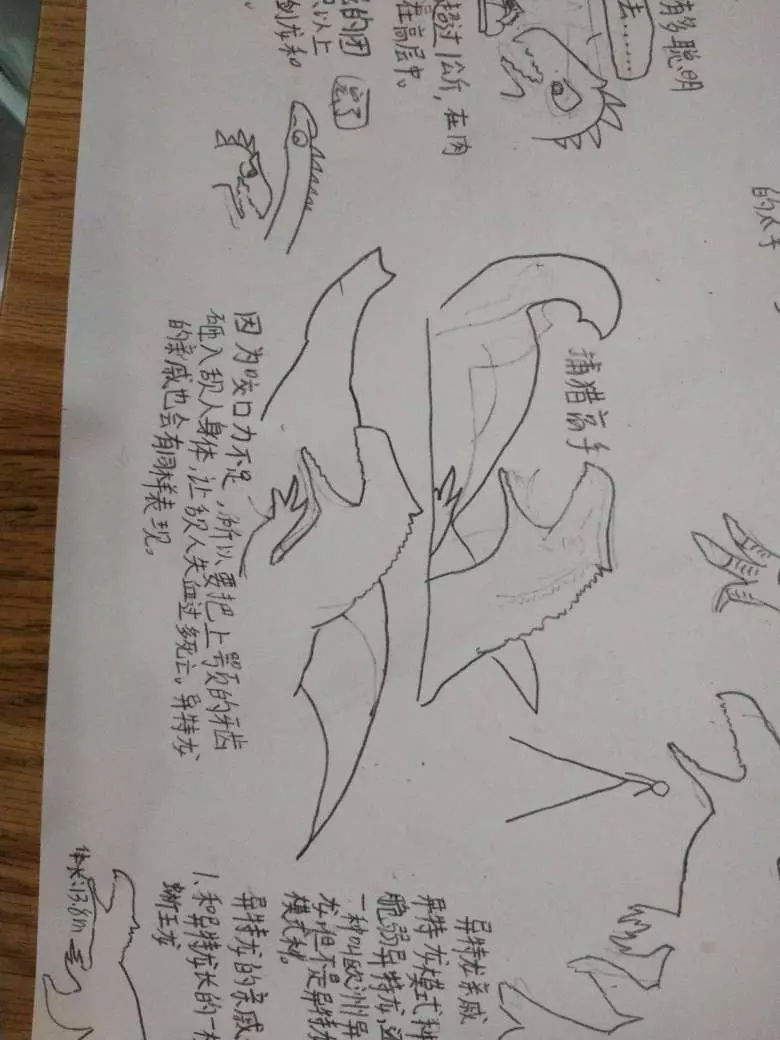 有多聪明
去……
超过1公斤，在肉
在高层中。
的团
以上
剑龙和
完了
捕猎高手
因为咬口力不足，所以要把上颚的牙齿
砸入敌人身体，让敌人失血过多死亡。异特龙
的亲戚也会有同样表现。
异特龙亲戚
异特龙模式种
脆弱异特龙，还
一种叫欧洲异
龙，但不是异特龙
模式种。
异特龙的亲戚
1、和异特龙长的一
蜥王龙
体长:13.8m